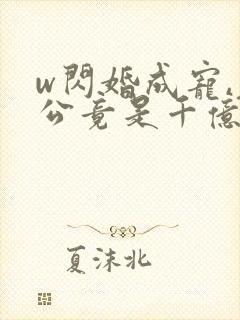 w閃婚成寵,
公竟是千億
夏沫北